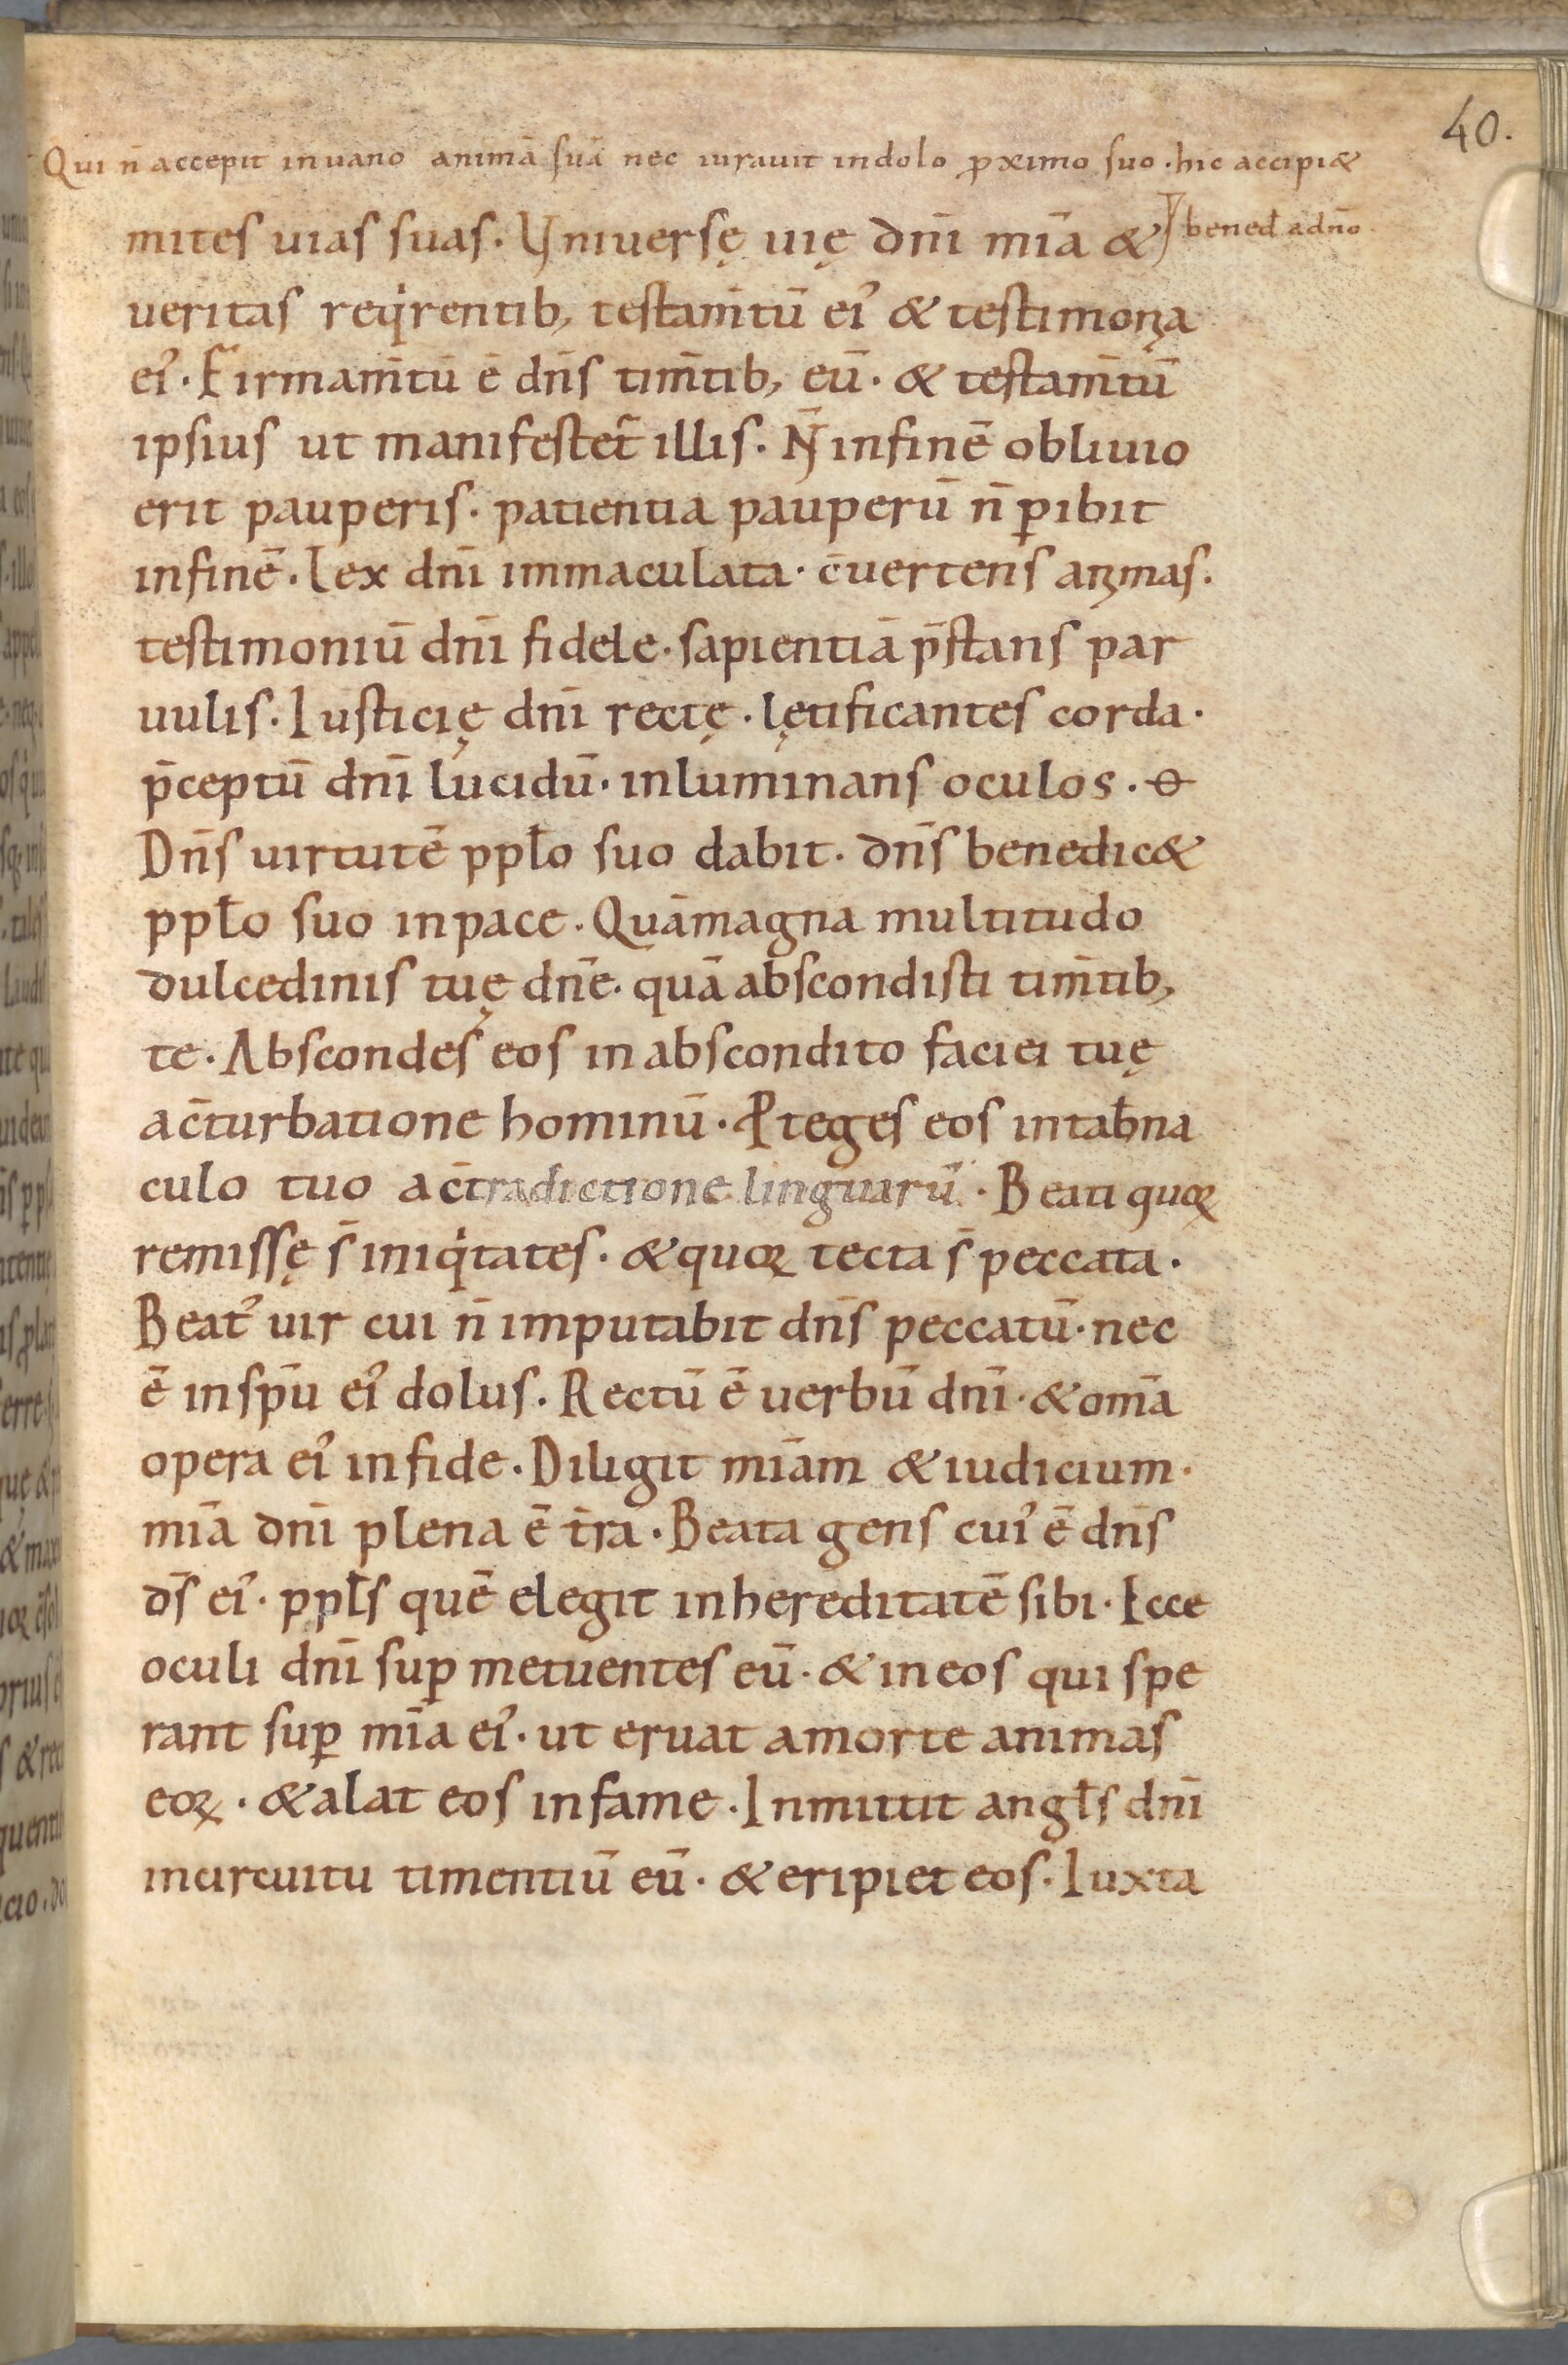 40.
Qui n̄ accepit inuano animā suā nec iurauit indolo ꝓximo suo · hic accipi&
bened̄ adn̄o.
mites uias suas. Vniuersę uię dn̄i mīa &
ueritas reqͥrentib, testam̄tū ei᾽ & testimonia
ei᾽. Firmam̄tū ē dn̄s tim̄tib, eū. & testam̄tū
ipsius ut manifestet᷑ illis. N̄ infinē obliuio
erit pauperis. patientia pauperū n̄ ꝑibit
infinē. Lex dn̄i immaculata. c̄uertens animas.
testimoniū dn̄i fidele. sapientiā p̄stans par
uulis. Iusticię dn̄i rectę. lętificantes corda.
p̄ceptū dn̄i lucidū. inluminans oculos. ɵ
Dn̄s uirtutē ppl̄o suo dabit. dn̄s benedic&
ppl̄o suo inpace. Quāmagna multitudo
dulcedinis tuę dn̄e. quā abscondisti tim̄tib,
te. Abscondes eos in abscondito faciei tuę
ac̄turbatione hominū. Ꝓteges eos intab̄na
culo tuo ac̄tradictione linguarū. Beati quoꝝ
remissę s̄ iniqͥtates. &quoꝝ tecta s̄ peccata.
Beat᾽ uir cui n̄ imputabit dn̄s peccatū. nec
ē insp̄u ei᾽ dolus. Rectū ē uerbū dn̄i. &om̄a
opera ei᾽ infide. Diligit mīam &iudicium.
mīa dn̄i plena ē t̄ra. Beata gens cui᾽ ē dn̄s
ds̄ ei᾽. ppl̄s quē elegit inhereditatē sibi. Ecce
oculi dn̄i suꝑ metuentes eū. & ineos qui spe
rant suꝑ mīa ei᾽. ut eruat amorte animas
eoꝝ. &alat eos infame. Inmittit angl̄s dn̄i
incircuitu timentiū eū. &eripiet eos. Iuxta